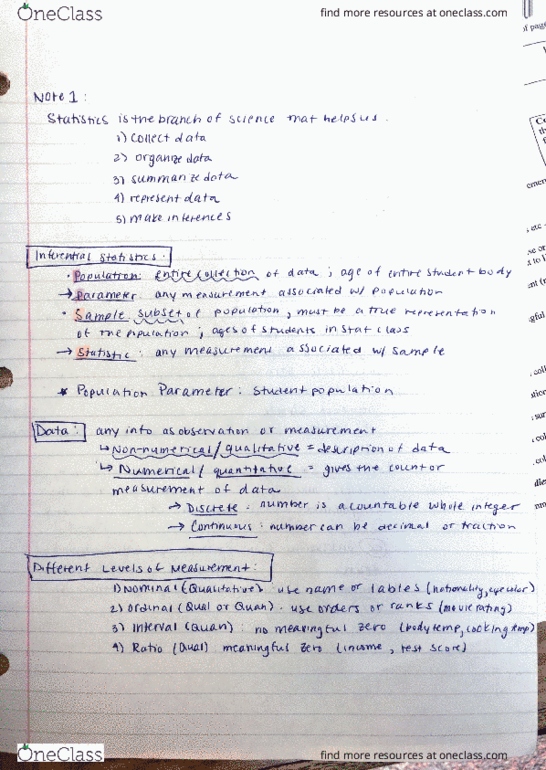 OneClass
find more resources at oneclass.com
Note 1:
Statistics is the branch of science that helps us.
1) collect data
2) organize data
3) summarize data
4) represent data
5) make inferences
Inferential Statistics.
· Population: entire collection of data; age of entire student body
→ Parameter: any measurement associated w/ population
· Sample: subset of population, must be a true representation
of the population; ages of students in stat class
→ Statistic: any measurement associated w/ sample
* Population Parameter: student population
Data: any info as observation or measurement
↳ Non-numerical/qualitative = description of data
↳ Numerical/quantitative = gives the count or
measurement of data
→ Discrete: number is a countable whole integer
→ Continuous: number can be decimal or fraction
Different Levels of Measurement:
1) Nominal (Qualitative): use name or lables (nationality, eye color)
2) Ordinal (Qual or Quan): use orders or ranks (movie rating)
3) Interval (Quan): no meaningful zero (body temp, cooking temp)
4) Ratio (Qual) meaningful zero (income, test score)
OneClass
find more resources at oneclass.com